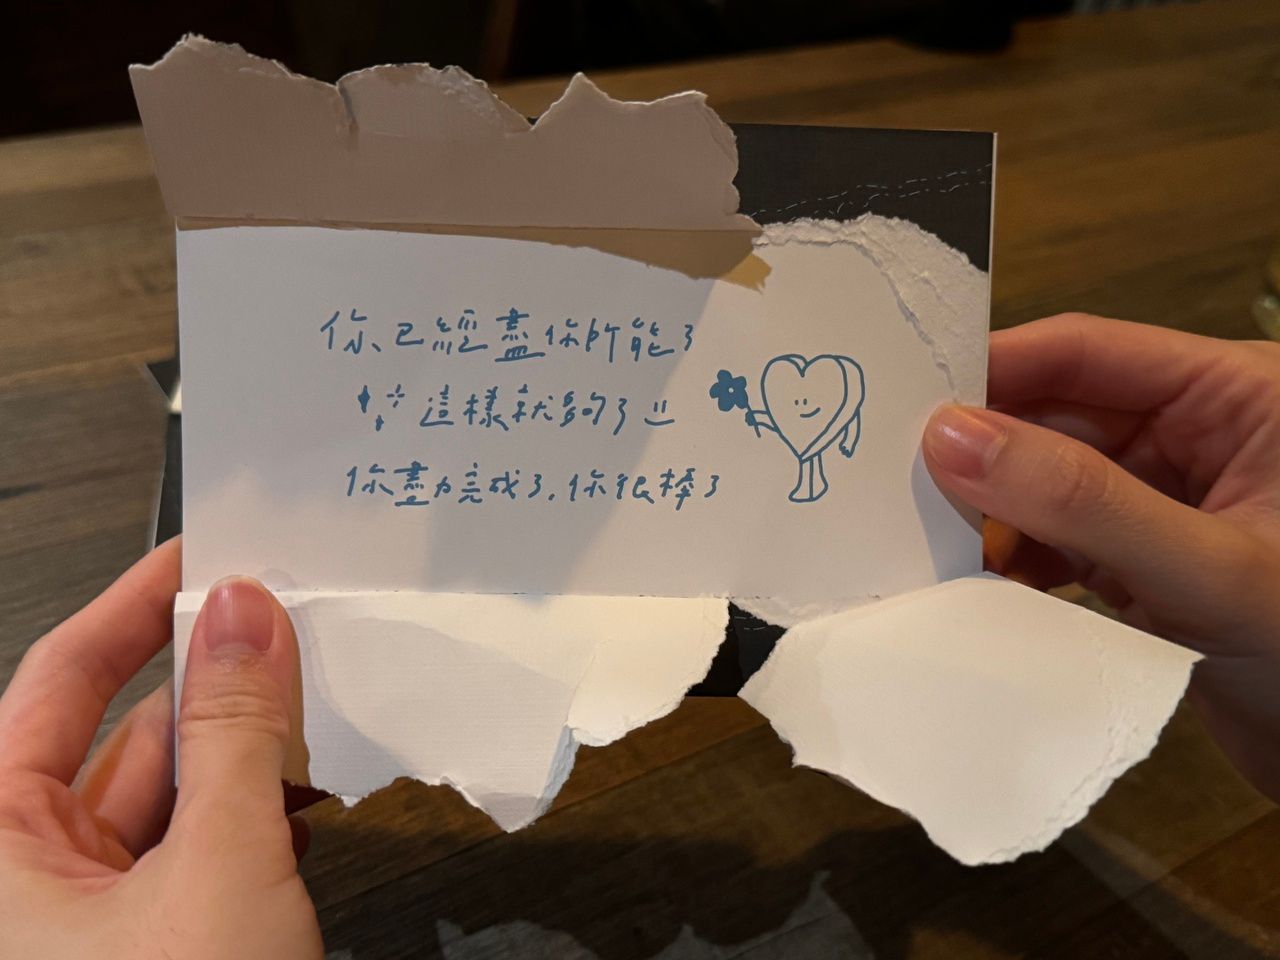 你已經盡你所能了
這樣就夠了
你盡力完成了，你很棒了